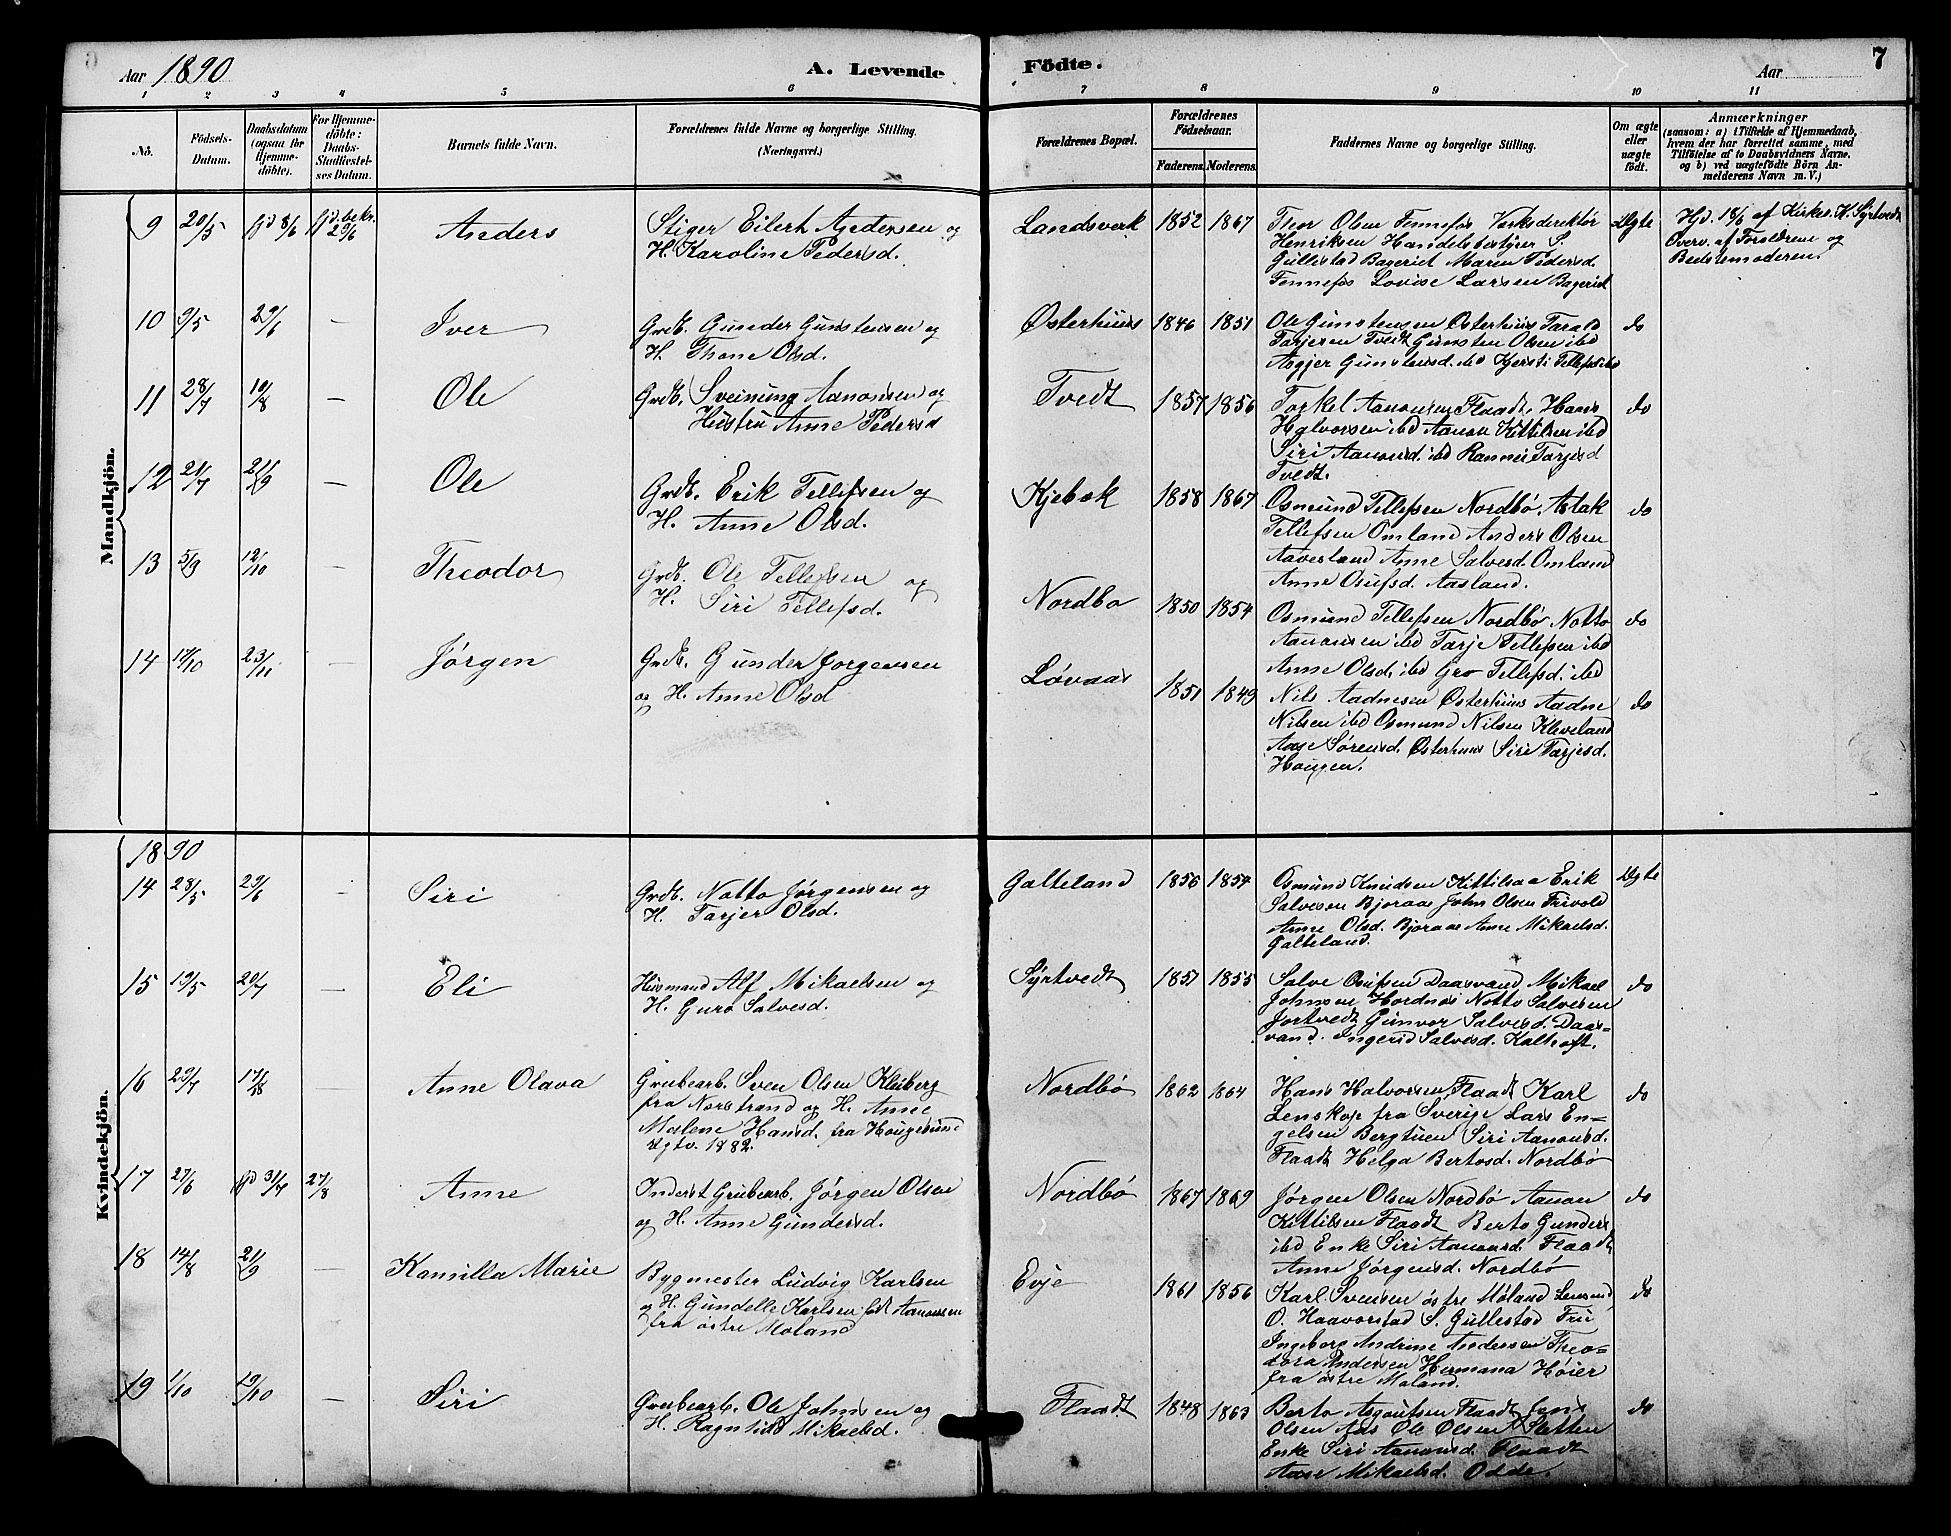 Aar 1890 A. Levende Födte. Aar 7
1 2 3 4 5 6 7 8 9 10 11
No.
Födsels-
Datum.
Daabsdatum
(ogsaa for
Hjemme-
döbte).
For Hjemme-
döbte:
Daabs-
Stadfæstel-
ses Datum.
Barnets fulde Navn.
Forældrenes fulde Navne og borgerlige Stilling.
(Næringsvei.)
Forældrenes Bopæl.
Forældrenes
Födselsaar.
Faderens. Moderens.
Faddernes Navne og borgerlige Stilling.
Om ægte
eller
uægte
födt.
Anmærkninger
(saasom: a) i Tilfælde af Hjemmedaab,
hvem der har forrettet samme, med
Tilföielse af to Daabsvidners Navne,
og b) ved uægtefödte Börn An-
melderens Navn m. V.)
Mandkjön.
9 20/5 hjd 8/6 hjd. bekr. 29/6 Anders
Stiger Eilert Andersen og
H. Karoline Pedersd.
Landsverk 1852 1867
Thor Olsen Fennefos Verksdirektör
Henriksen Handelsbestyrer S.
Gullestad Bageriet Maren Pedersd.
Fennefos Lovise Larsen Bageriet
Ægte
Hjd. 18/6 af Kirkes. K. Syrtvedt
Overv. af Forældrene og
Bedstemoderen.
10 9/5 29/6 — Iver
Grdb. Gunder Gunstensen og
H. Thone Olsd.
Østerhuus 1846 1851
Ole Gunstensen Østerhuus Tarald
Tarjesen Tvedt Gunsten Olsen ibd
Asgjer Gunstensd. ibd Kjersti Tellefsd ibd
do
11 28/7 10/8 — Ole
Grdb. Sveinung Aanonsen og
Hustru Anne Pedersd
Tvedt 1857 1856
Torkel Aanonsen Flaadt, Hans
Halvorsen ibd Aanon Kittilsen ibd
Siri Aanonsd. ibd Rannei Tarjesd
Tvedt.
do
12 21/7 21/9 — Ole
Grdb. Erik Tellefsen og
H. Anne Olsd.
Kjebæk 1858 1867
Osmund Tellefsen Nordbö, Aslak
Tellefsen Omland Anders Olsen
Aaverland Anne Salvesd. Omland
Anne Osufsd. Aasland.
do
13 5/9 12/10 — Theodor
Grdb. Ole Tellefsen og
H. Siri Tellefsd.
Nordbø 1850 1854
Osmund Tellefsen Nordbö Notto
Aanonsen ibd Tarje Tellefsen ibd
Anne Olsd. ibd Gro Tellefsd. ibd
do
14 17/10 23/11 — Jørgen
Grdb. Gunder Jorgensen
og H. Anne Olsd
Løvaas 1851 1849
Nils Aadnesen Østerhuus Aadne
Nilsen ibd Osmund Nilsen Kleveland
Aase Sørensd. Østerhuus Siri Tarjesd.
Hougen.
do
Kvindekjön.
1890
14 28/5 29/6 — Siri
Grdb. Notto Jørgensen og
H. Tarjer Olsd.
Galteland 1856 1854
Osmund Knudsen Kittilsaa Erik
Salvesen Bjoraas John Olsen Frivold
Anne Olsd. Bjoraas Anne Mikaelsd.
Galteland.
Ægte
15 19/5 20/7 — Eli
Husmand Alf Mikaelsen og
H. Guro Salvesd.
Syrtvedt 1851 1855
Salve Osufsen Daasvand Mikael
Johnsen Hordnes Notto Salvesen
Jortvedt Gunvor Salvesd. Daas-
vand. Ingerid Salvesd. Kaltoft.
do
16 29/7 17/8 — Anne Olava
Grubearb. Sven Olsen Kleiberg
fra Norstrand og H. Anne
Malene Hansd. fra Hougesund
Ægtv. 1882.
Nordbø 1862 1864
Hans Halvorsen Flaadt Karl
Lenskop fra Sverige Lars En-
gelsen Bergtuen Siri Aanonsd.
Flaadt Helga Bertosd. Nordbø
do
17 27/6 hjd 31/7 27/8 Anne
Inderst Grubearb. Jörgen Olsen
og H. Anne Gundersd.
Nordbø 1867 1869
Jørgen Olsen Nordbö Aanon
Kittilsen Flaadt Berto Gunders
ibd Enke Siri Aanonsd. Flaadt
Anne Jørgensd. Nordbø
do
18 14/8 21/9 — Kamilla Marie
Bygmester Ludvig Karlsen
og H. Gundelle Karlsen født Aanonsen
fra østre Moland
Evje 1861 1856
Karl Svensen østre Moland Lensmd
O. Haavorstad S. Gullestad Fru
Ingeborg Andrine Andersen Theo-
dora Andersen Hermana Høier
fra østre Moland.
do
19 1/10 19/10 — Siri
Grubearb. Ole Johnsen og
H. Ragnhild Mikaelsd.
Flaadt 1848 1863
Berto Asgoutsen Flaadt Jens
Olsen Aas Ole Olsen Sletten
Enke Siri Aanonsd. Flaadt
Aase Mikaelsd. Odde.
do